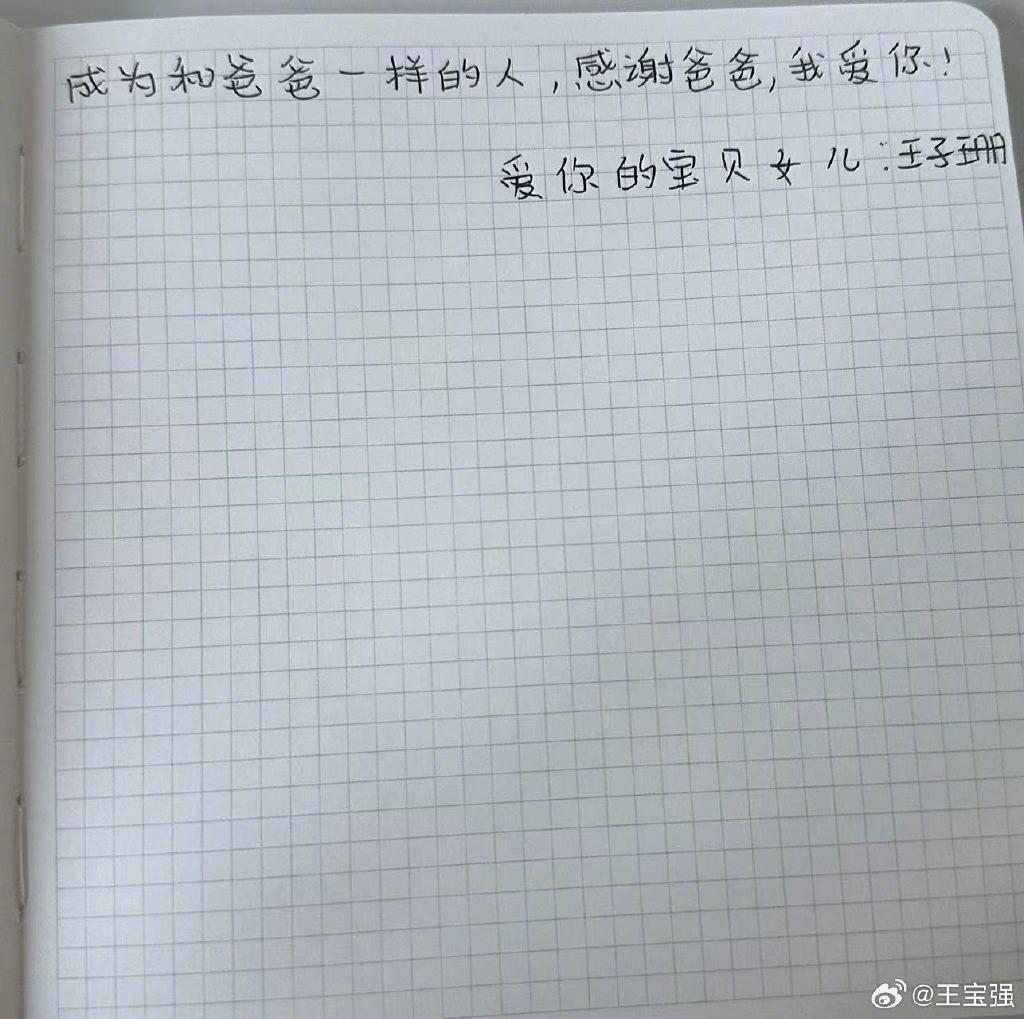 成为和爸爸一样的人，感谢爸爸，我爱你！
爱你的宝贝女儿：王子珊
@王宝强